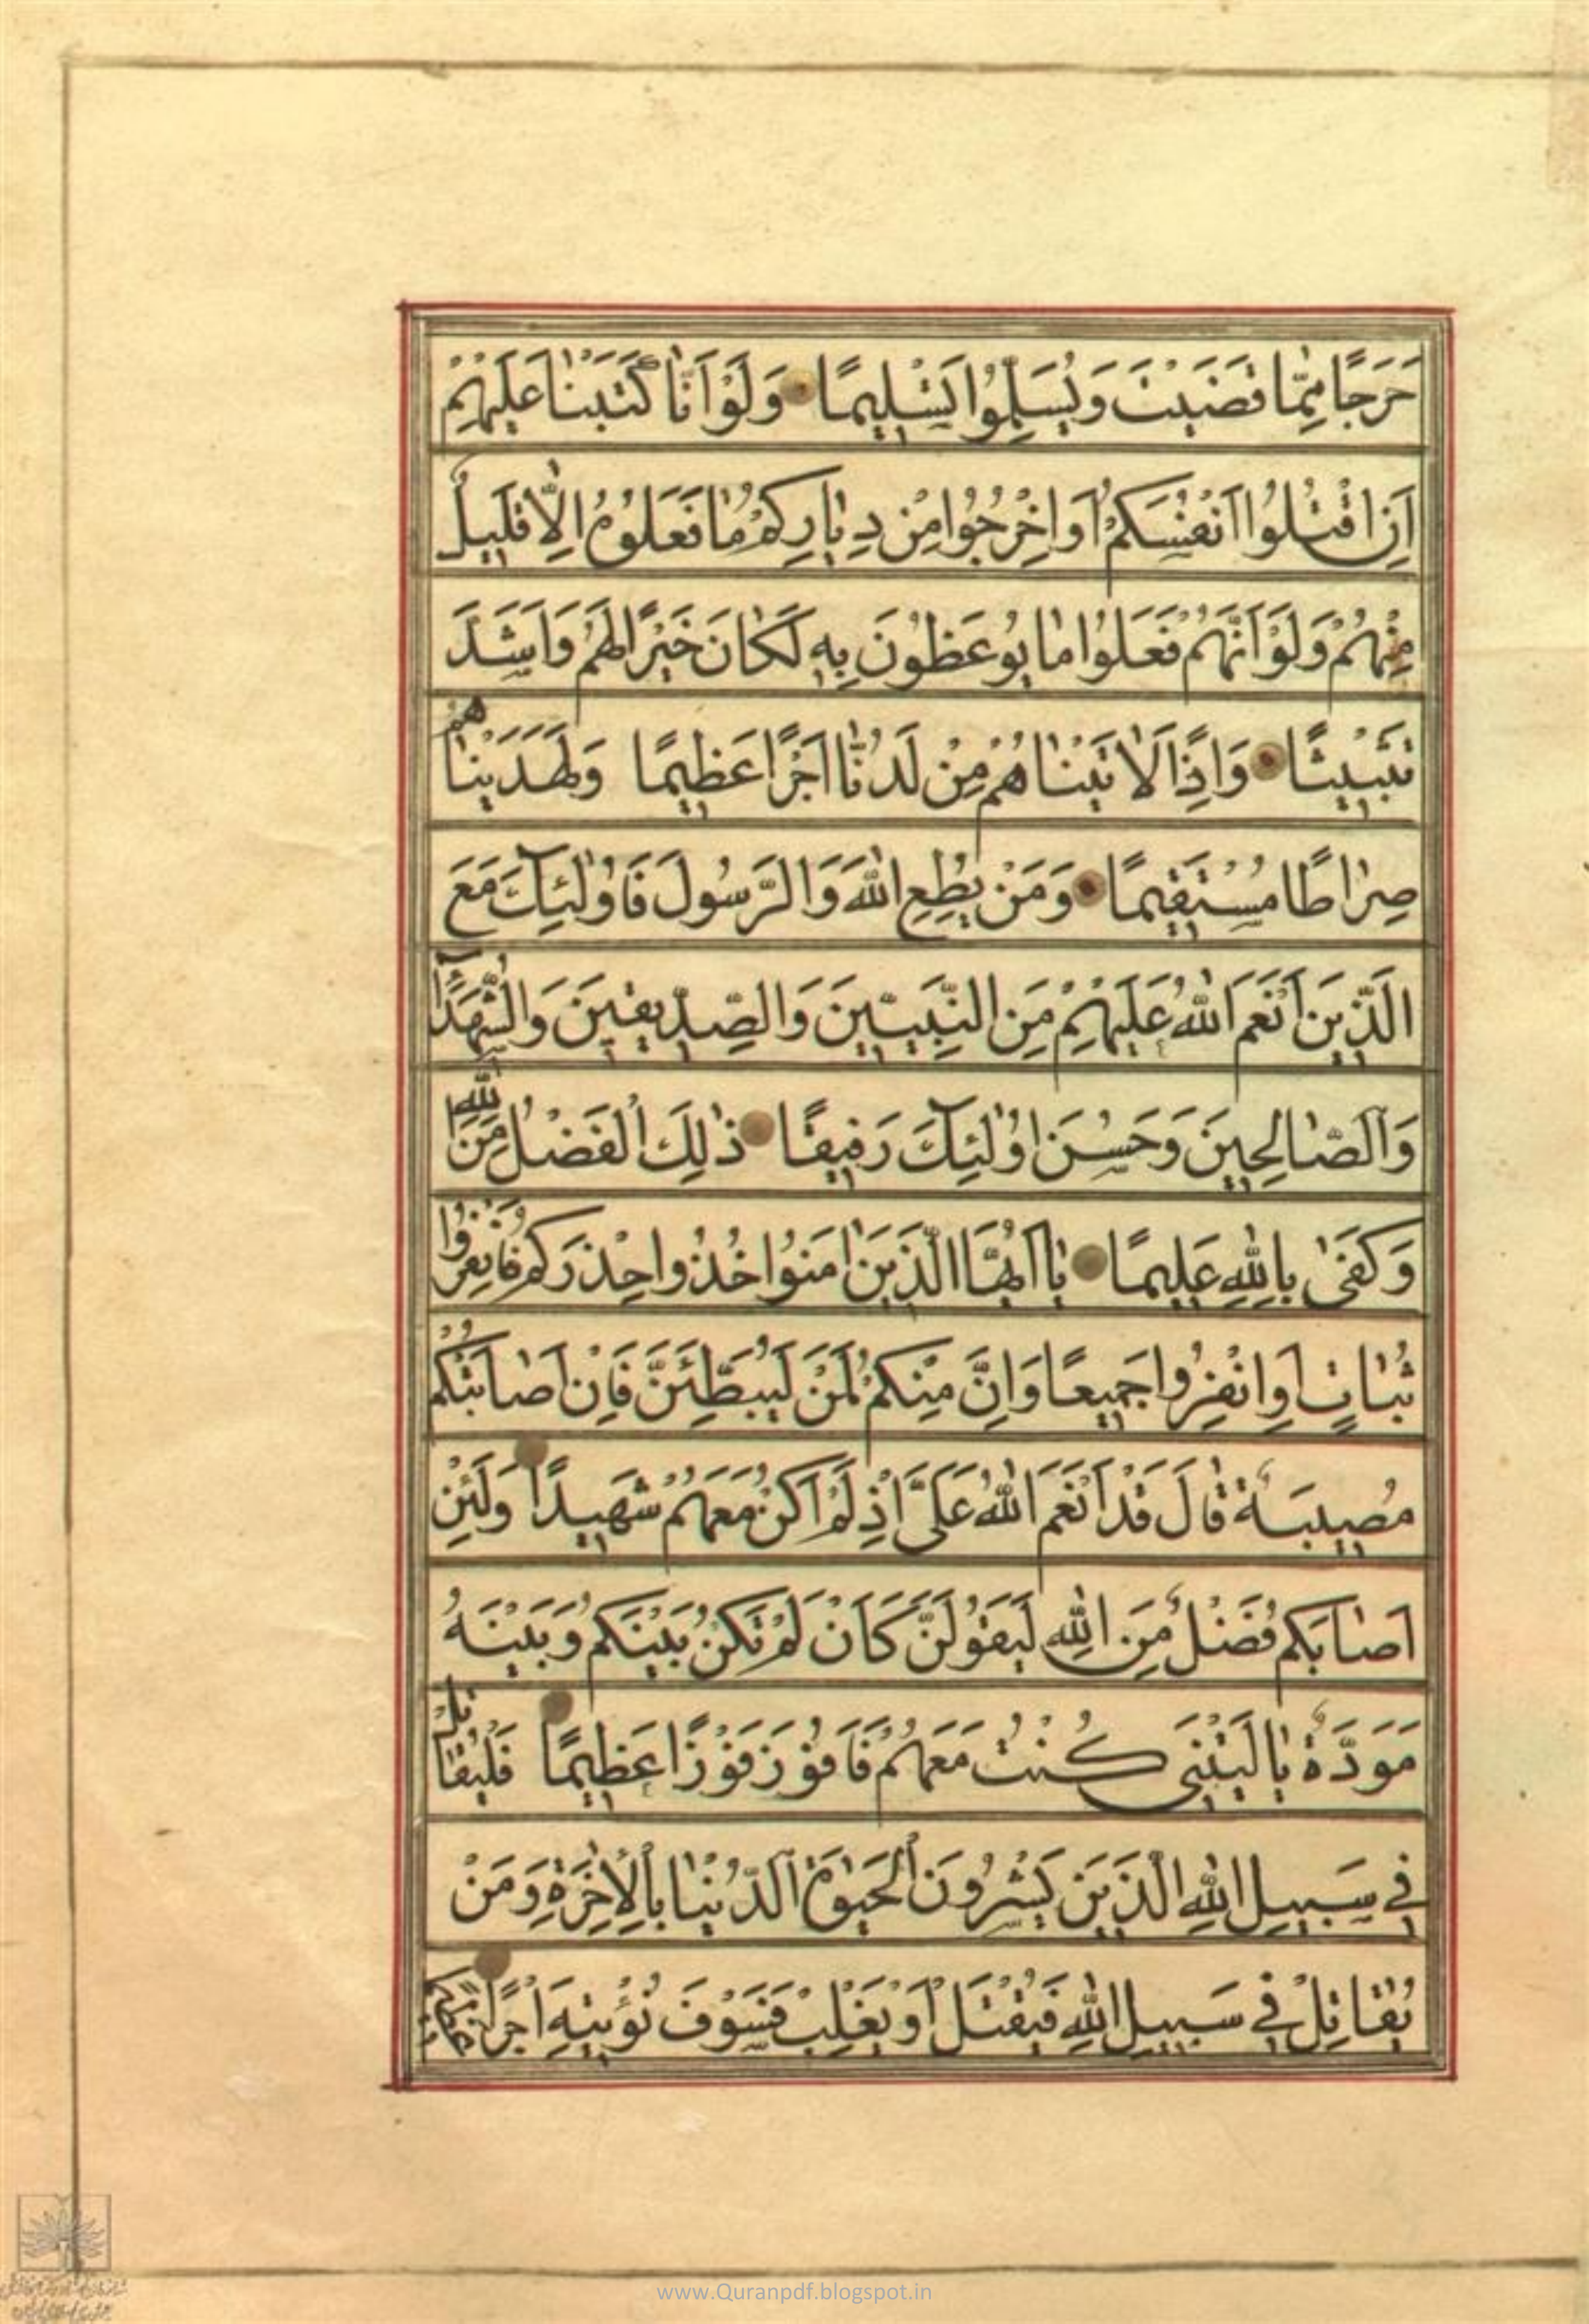 حَرَجًا مِمّٰا قَضَيْتَ وَيُسَلِّمُوا تَسْلِيمًا وَلَوْ اَنّٰا كَتَبْنٰا عَلَيْهِمْ
اَنِ اقْتُلُوا اَنْفُسَكُمْ اَوِ اخْرُجُوا مِنْ دِيٰارِكُمْ مٰا فَعَلُوهُ اِلّٰا قَلِيلٌ
مِنْهُمْ وَلَوْ اَنَّهُمْ فَعَلُوا مٰا يُوعَظُونَ بِهِ لَكٰانَ خَيْرًا لَهُمْ وَاَشَدَّ
تَثْبِيتًا وَاِذًا لَاٰتَيْنٰاهُمْ مِنْ لَدُنّٰا اَجْرًا عَظِيمًا وَلَهَدَيْنٰاهُمْ
صِرٰاطًا مُسْتَقِيمًا وَمَنْ يُطِعِ اللّٰهَ وَالرَّسُولَ فَاُولٰئِكَ مَعَ
الَّذِينَ اَنْعَمَ اللّٰهُ عَلَيْهِمْ مِنَ النَّبِيِّينَ وَالصِّدِّيقِينَ وَالشُّهَدٰٓاءِ
وَالصّٰالِحِينَ وَحَسُنَ اُولٰئِكَ رَفِيقًا ذٰلِكَ الْفَضْلُ مِنَ اللّٰهِ
وَكَفىٰ بِاللّٰهِ عَلِيمًا يٰا اَيُّهَا الَّذِينَ اٰمَنُوا خُذُوا حِذْرَكُمْ فَانْفِرُوا
ثُبٰاتٍ اَوِ انْفِرُوا جَمِيعًا وَاِنَّ مِنْكُمْ لَمَنْ لَيُبَطِّئَنَّ فَاِنْ اَصٰابَتْكُمْ
مُصِيبَةٌ قٰالَ قَدْ اَنْعَمَ اللّٰهُ عَلَيَّ اِذْ لَمْ اَكُنْ مَعَهُمْ شَهِيدًا وَلَئِنْ
اَصٰابَكُمْ فَضْلٌ مِنَ اللّٰهِ لَيَقُولَنَّ كَاَنْ لَمْ تَكُنْ بَيْنَكُمْ وَبَيْنَهُ
مَوَدَّةٌ يٰا لَيْتَنِي كُنْتُ مَعَهُمْ فَاَفُوزَ فَوْزًا عَظِيمًا فَلْيُقٰاتِلْ
فِي سَبِيلِ اللّٰهِ الَّذِينَ يَشْرُونَ الْحَيٰوةَ الدُّنْيٰا بِالْاٰخِرَةِ وَمَنْ
يُقٰاتِلْ فِي سَبِيلِ اللّٰهِ فَيُقْتَلْ اَوْ يَغْلِبْ فَسَوْفَ نُؤْتِيهِ اَجْرًا عَظِيمًا
www.Quranpdf.blogspot.in